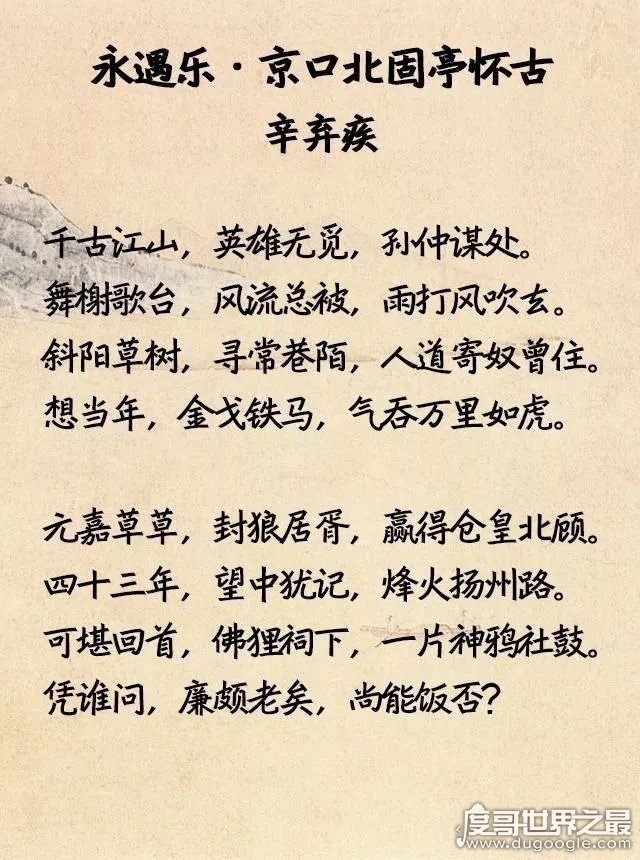 永遇乐·京口北固亭怀古
辛弃疾
千古江山，英雄无觅，孙仲谋处。
舞榭歌台，风流总被，雨打风吹去。
斜阳草树，寻常巷陌，人道寄奴曾住。
想当年，金戈铁马，气吞万里如虎。
元嘉草草，封狼居胥，赢得仓皇北顾。
四十三年，望中犹记，烽火扬州路。
可堪回首，佛狸祠下，一片神鸦社鼓。
凭谁问，廉颇老矣，尚能饭否？
度哥世界之最
www.dugoogle.com